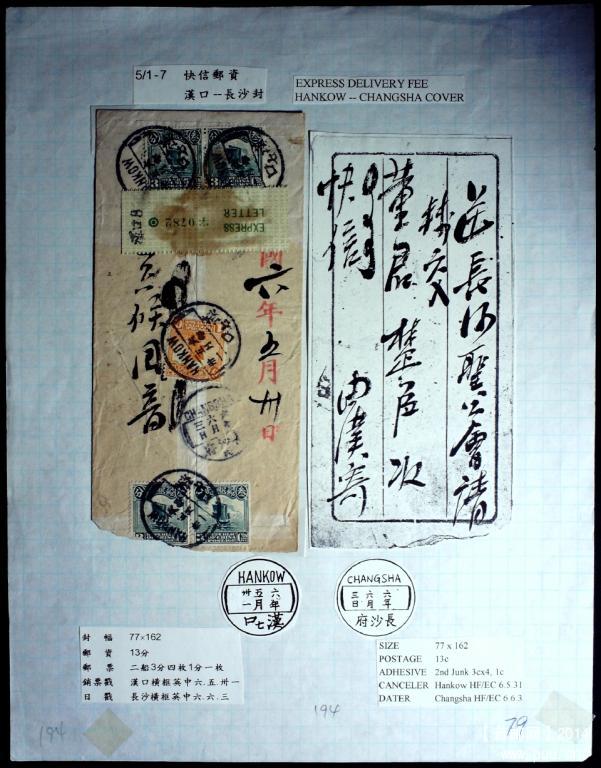 5/1-7 快信郵資
漢口--長沙封
EXPRESS DELIVERY FEE
HANKOW -- CHANGSHA COVER
HANKOW
HANKOW
EXPRESS
LETTER
0782
國六年五月卅日
HANKOW
CHANGSHA
HANKOW
茲長沙聖公會請
轉交
董君楚臣收
快信
由漢寄
HANKOW
卅五六
一月年
口七漢
CHANGSHA
三六六
日月年
府沙長
封 幅 77×162
郵 資 13分
郵 票 二船3分四枚1分一枚
銷票戳 漢口橫框英中六.五.卅一
日 戳 長沙橫框英中六.六.三
SIZE 77 x 162
POSTAGE 13c
ADHESIVE 2nd Junk 3cx4, 1c
CANCELER Hankow HF/EC 6.5.31
DATER Changsha HF/EC 6.6.3
194
194
79